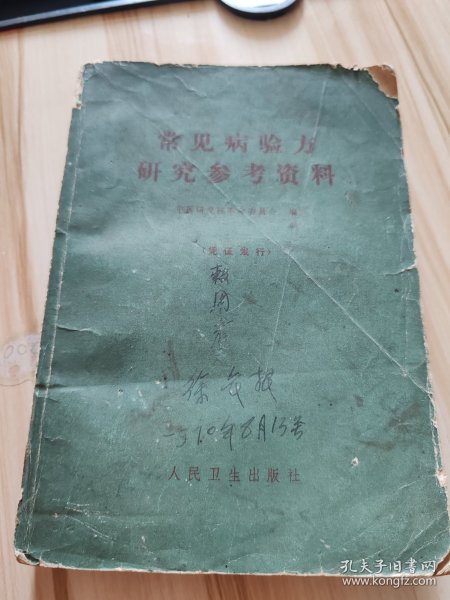 常见病验方
研究参考资料
中医研究院革命委员会 编
(凭证发行)
徐
70年8月13号
人民卫生出版社
孔夫子旧书网
www.kongfz.com
00